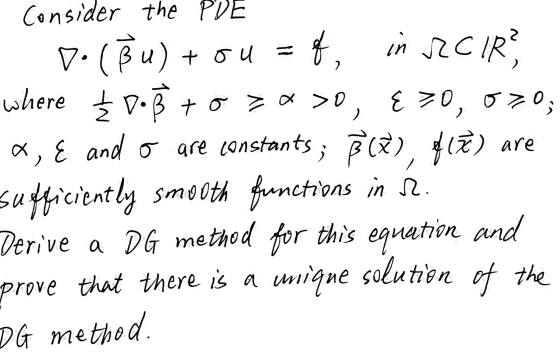 Consider the PDE
∇·(β⃗u) + σu = f, in Ω⊂ℝ²,
where ½∇·β⃗ + σ ≥ α > 0, ε ≥ 0, σ ≥ 0;
α, ε and σ are constants; β⃗(x⃗), f(x⃗) are
sufficiently smooth functions in Ω.
Derive a DG method for this equation and
prove that there is a unique solution of the
DG method.